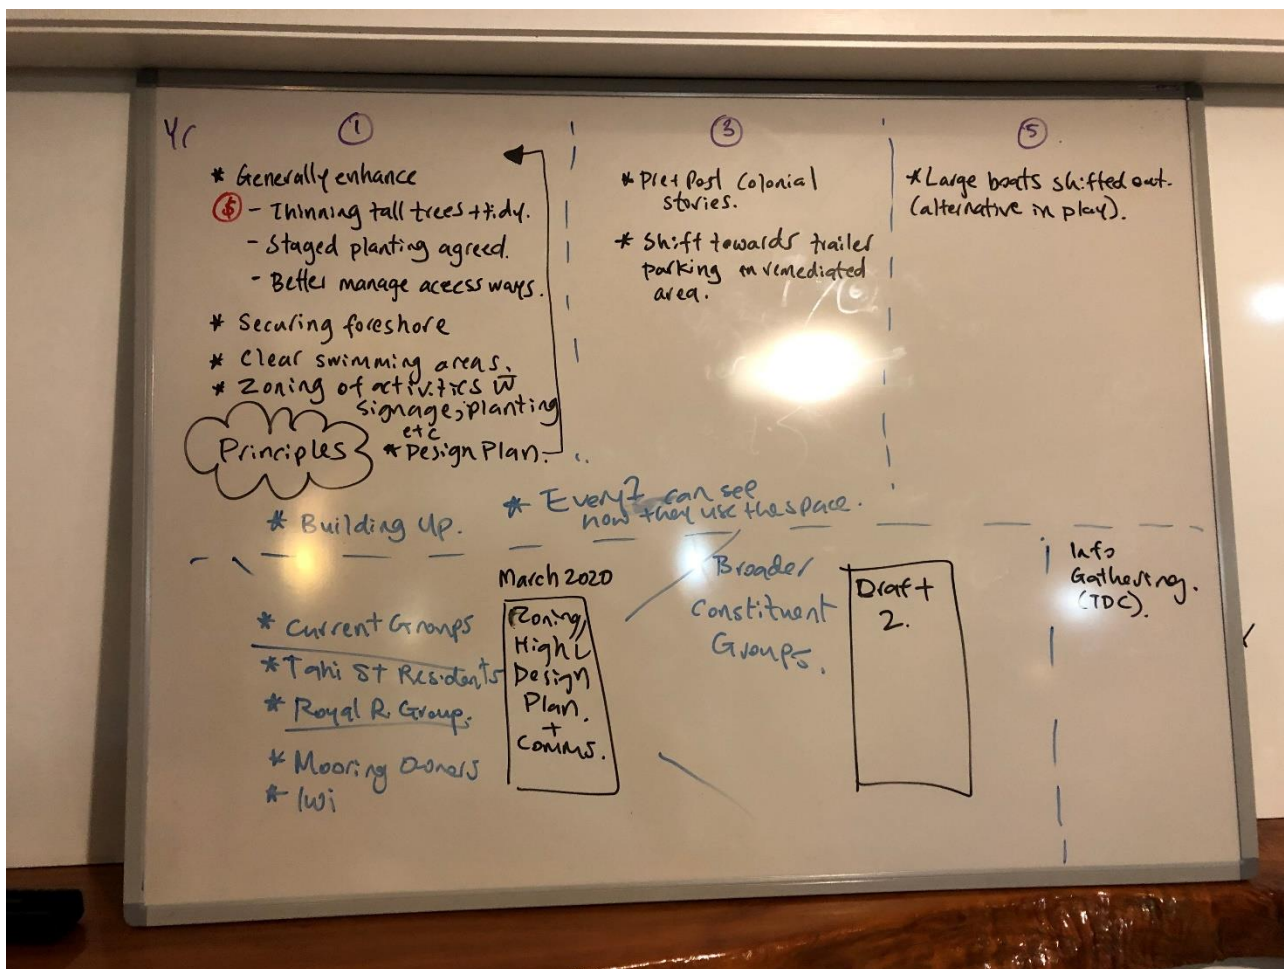 Yr
①
* Generally enhance
$ - Thinning tall trees + tidy.
- Staged planting agreed.
- Better manage access ways.
* Securing foreshore
* Clear swimming areas.
* Zoning of activities w̄
signage, planting
etc
Principles
* Design Plan.
③
* Pre + Post Colonial
stories.
* Shift towards trailer
parking in remediated
area.
⑤
* Large boats shifted out.
(alternative in play).
* Building Up.
* Every1 can see
how they use the space.
* Current Groups
* Tahi St Residents
* Royal R Group.
* Mooring Owners
* Iwi
March 2020
Zoning/
High L
Design
Plan.
+
Comms.
Broader
Constituent
Groups.
Draft
2.
Info
Gathering.
(TDC).